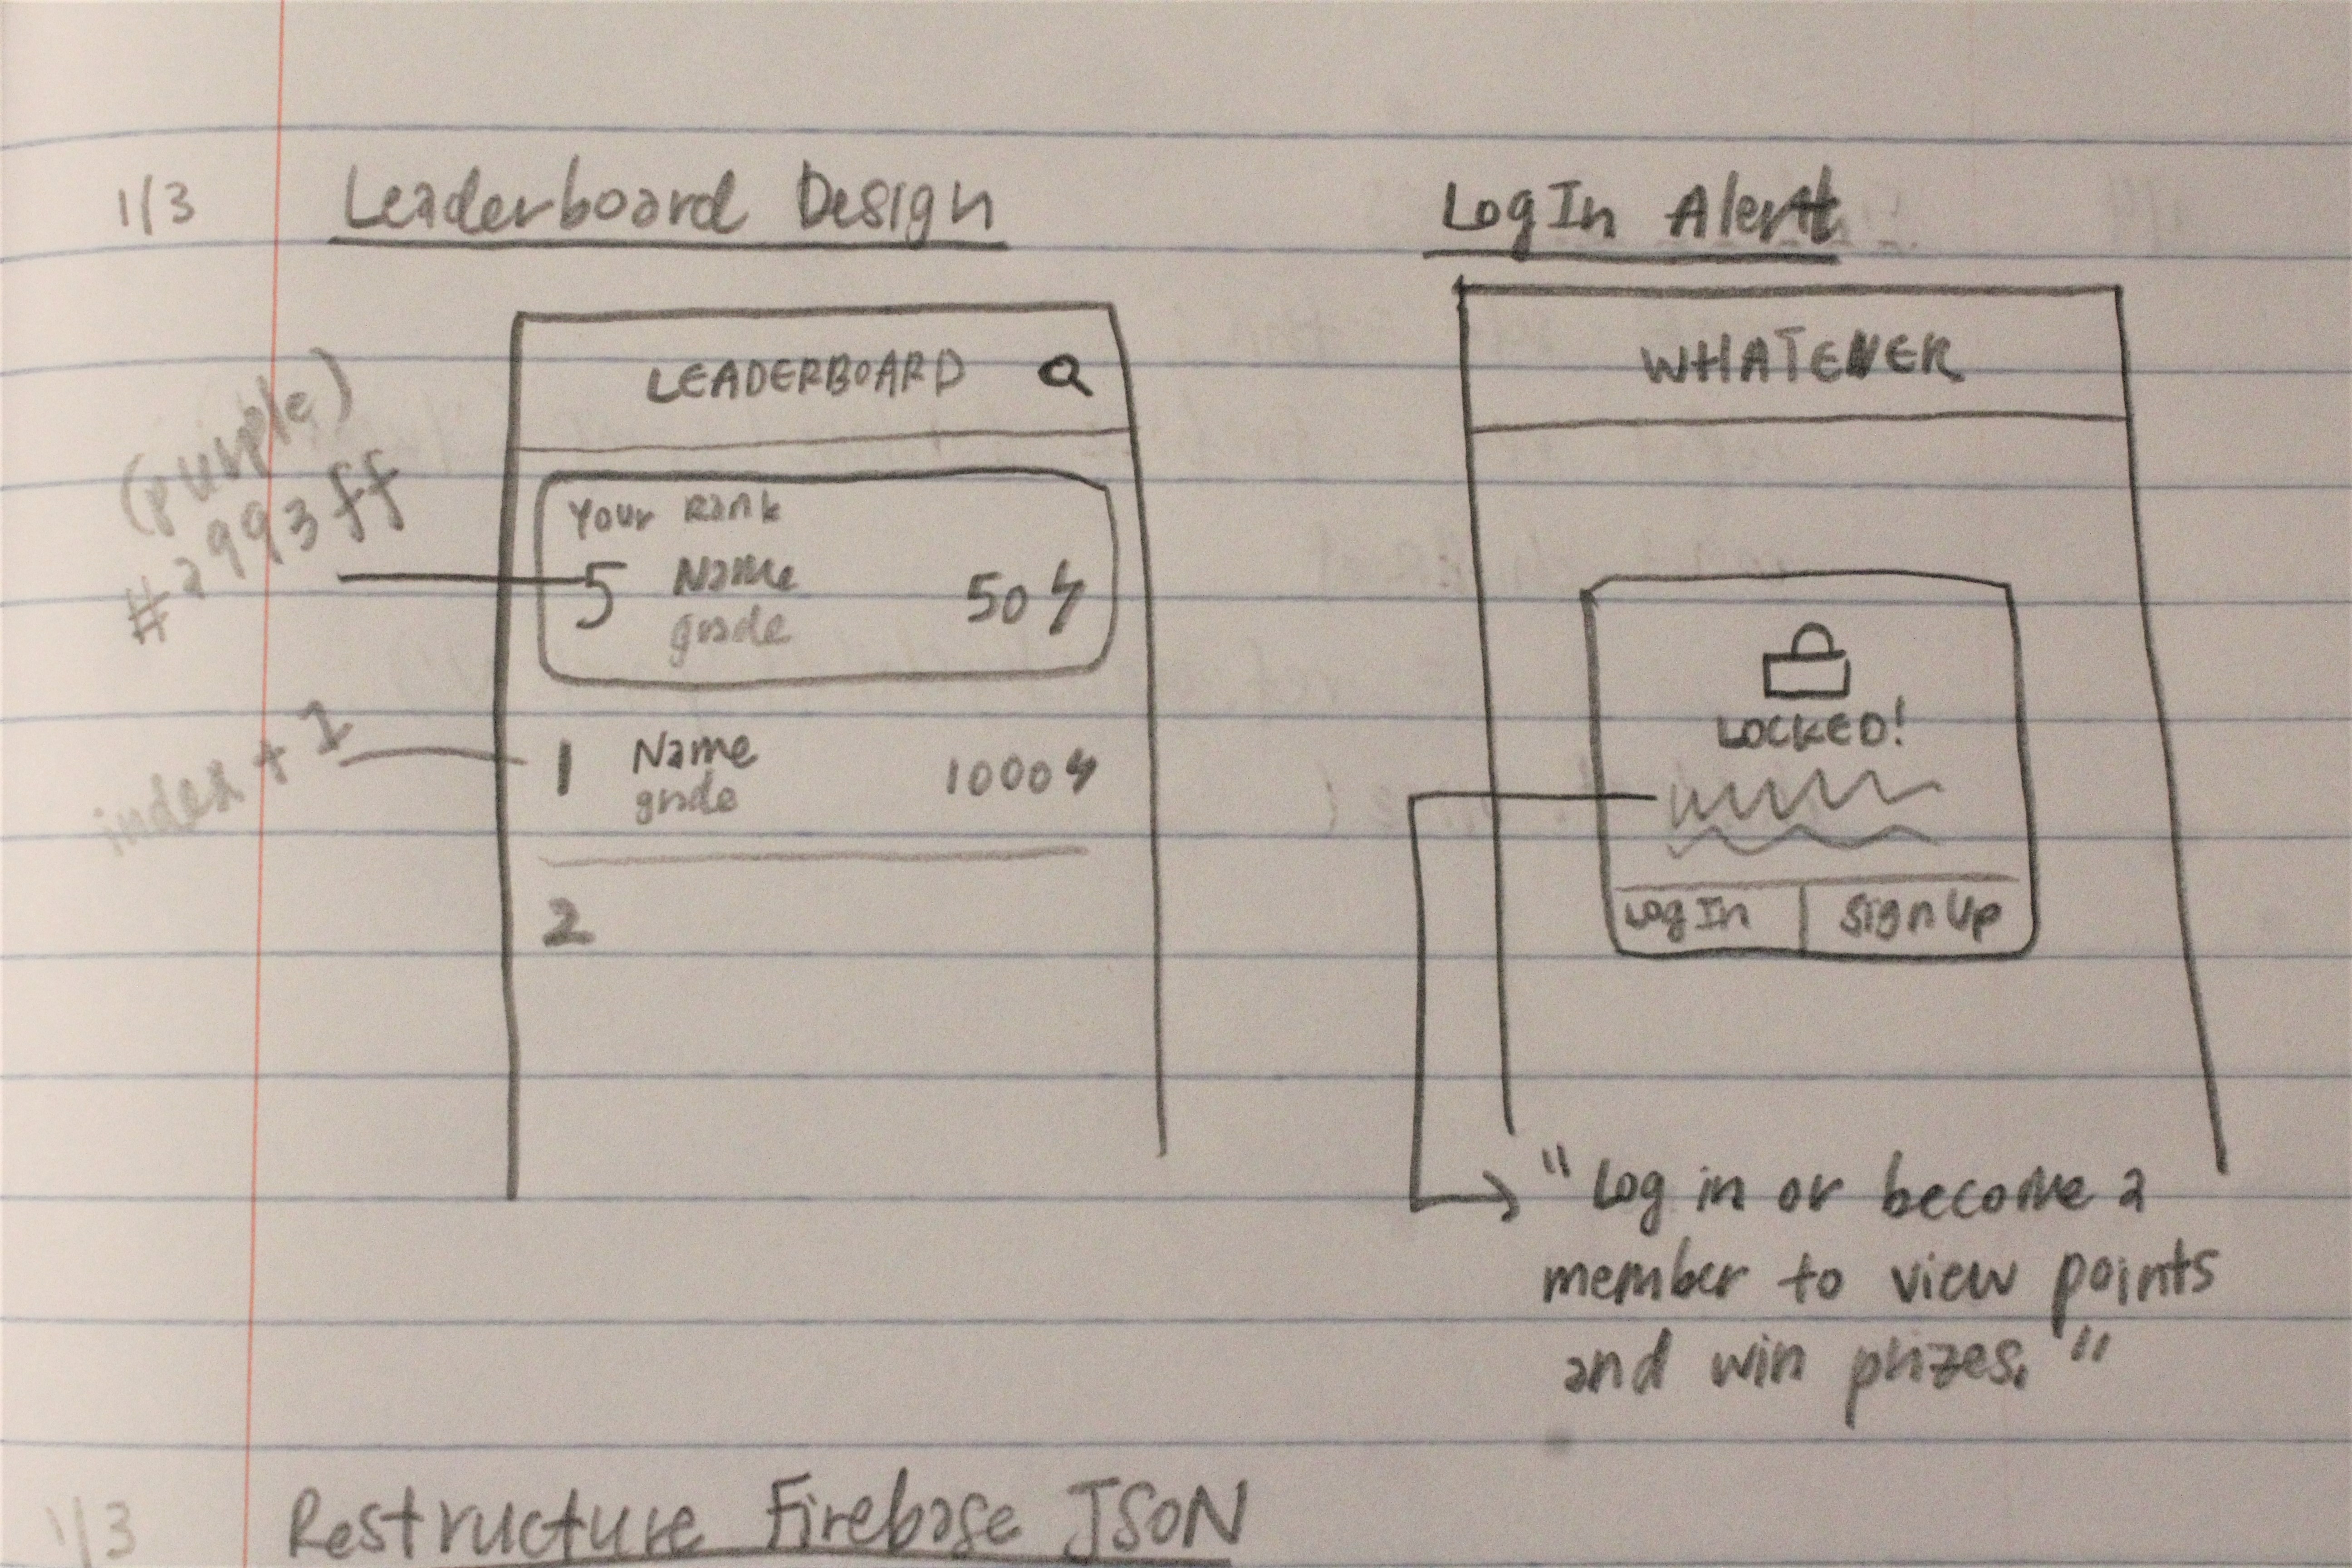 1/3 Leaderboard Design
LEADERBOARD
(purple)
#a993ff
Your Rank
5 Name 50
grade
index + 1
1 Name 1000
grade
2
Log In Alert
WHATEVER
LOCKED!
Log In | Sign Up
"Log in or become a
member to view points
and win prizes."
1/3 Restructure Firebase JSON